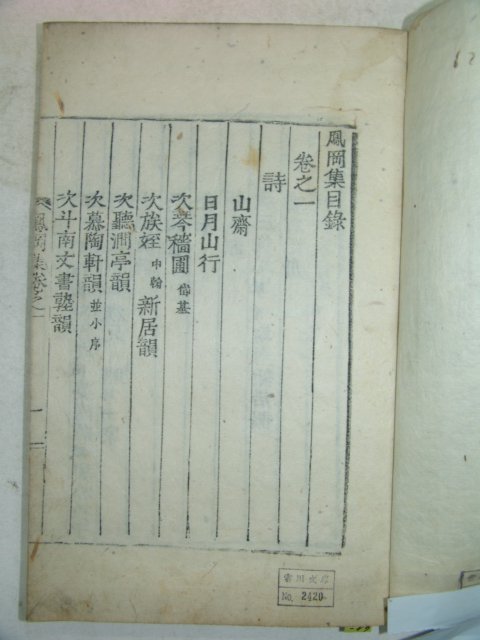 鳳岡集目錄
卷之一
詩
山齋
日月山行
次琴穡圃岱基
次族姪中翰新居韻
次聽澗亭韻
次慕陶軒韻並小序
次斗南文書塾韻
鳳岡集卷之一
一
No. 2420